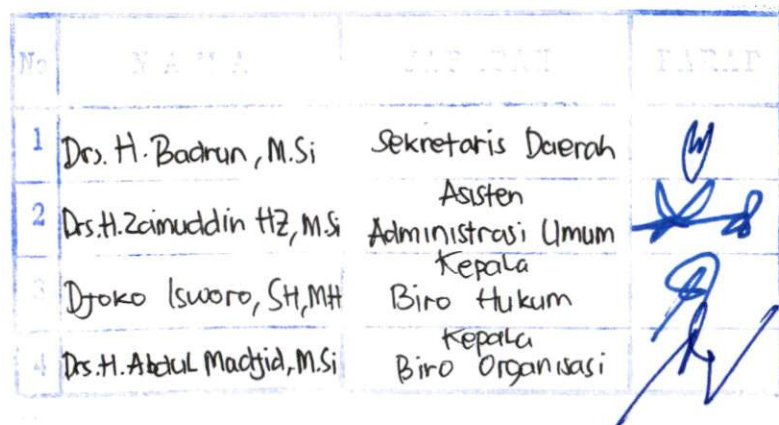 No NAMA JABATAN PARAF
1 Drs. H. Badrun, M.Si Sekretaris Daerah
2 Drs.H.Zainuddin HZ, M.Si Asisten Administrasi Umum
3 Djoko Isworo, SH,MH Kepala Biro Hukum
4 Drs.H.Abdul Madjid, M.Si Kepala Biro Organisasi